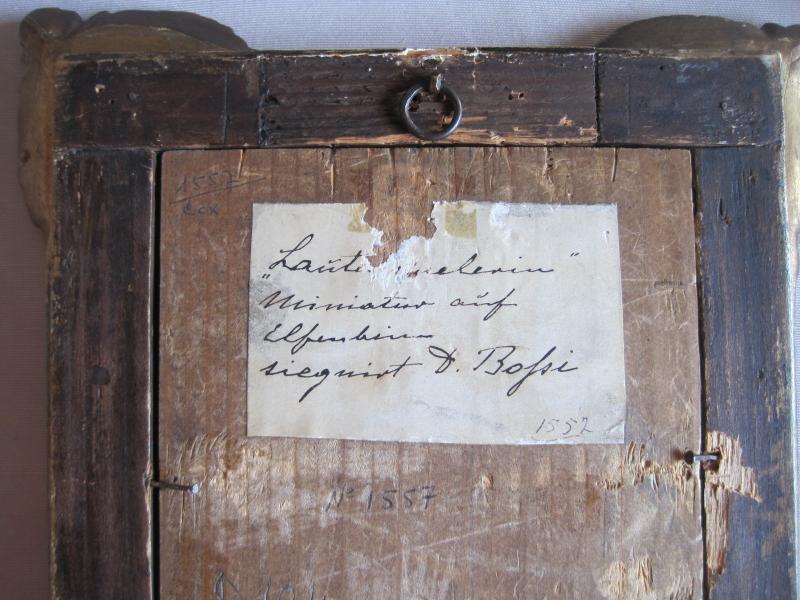 1557
Cox
„Laute  nelerin"
Miniatur auf
Elfenbein
siegnirt D. Boſsi
1552
N° 1557